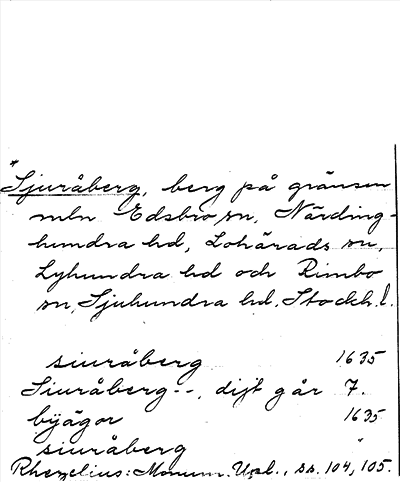 *Sjuråberg, berg på gränsen
mln Edsbro sn, Närding-
hundra hd, Lohärads sn,
Lyhundra hd och Rimbo
sn, Sjuhundra hd, Stockh. l.
siuråberg 1635
Siuråberg--, dijt går 7.
byägor 1635
siuråberg "
Rhezelius: Monum. Upl., ss. 104, 105.